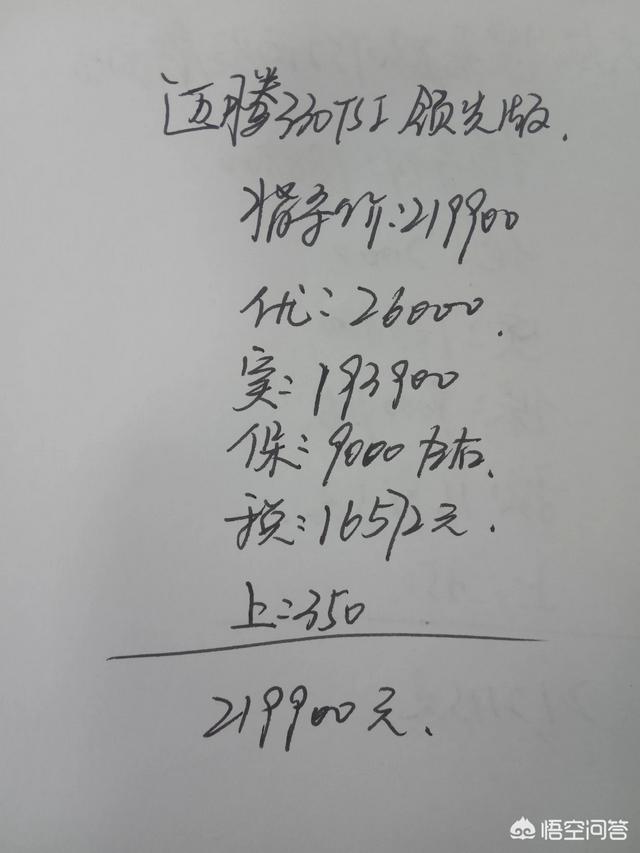 迈腾330TSI 领先版.
指导价:219900
优:26000.
实:193900
保:9000左右.
税:16572元.
上:350
219900元.
悟空问答